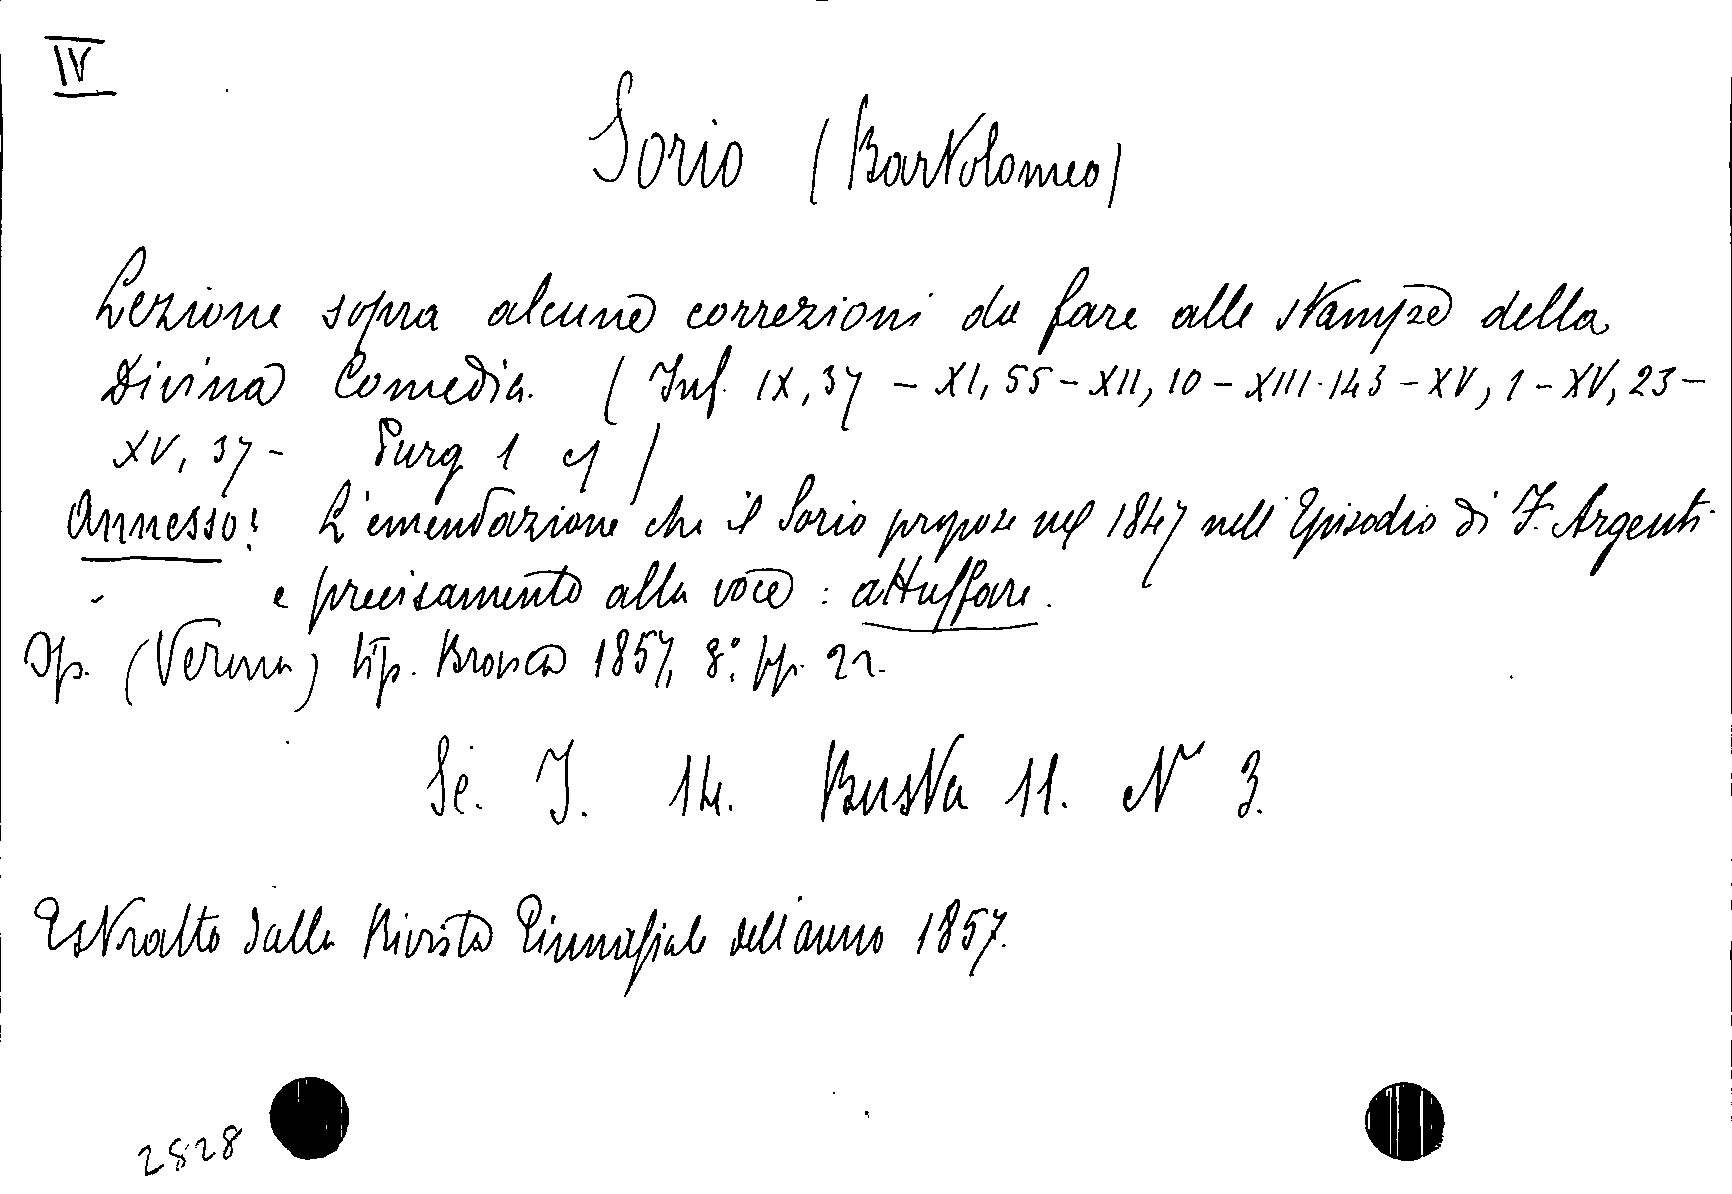 IV
Sorio (Bartolomeo)
Lezione sopra alcune correzioni da fare alle stampe della
Divina Comedia. ( Inf. IX, 37 - XI, 55 - XII, 10 - XIII. 143 - XV, 1 - XV, 23 -
XV, 37 - Purg 1 )
Annesso: L'emendazione che il Sorio propose nel 1847 nell'Episodio di F. Argenti
e precisamente alla voce : attuffare.
(Verona) tip. 1857, 8° pp. 22.
Sc. I. 14. Busta 11. N 3.
Estratto dalla Rivista Ginnasiale dell'anno 1857.
2828